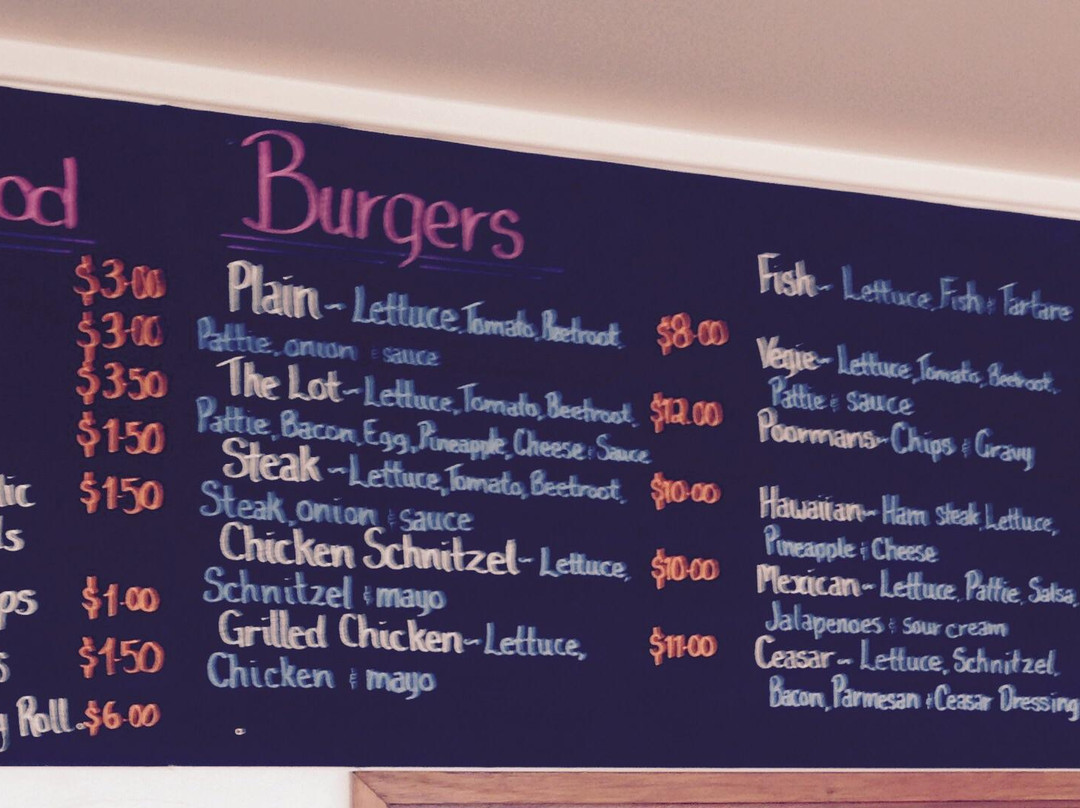 od
$3.00
$3.00
$3.50
$1.50
lic $1.50
ls
ps $1.00
s $1.50
y Roll. $6.00
Burgers
Plain - Lettuce, Tomato, Beetroot, $8.00
Pattie, onion & sauce
The Lot - Lettuce, Tomato, Beetroot, $12.00
Pattie, Bacon, Egg, Pineapple, Cheese & Sauce
Steak - Lettuce, Tomato, Beetroot, $10.00
Steak, onion & sauce
Chicken Schnitzel - Lettuce, $10.00
Schnitzel & mayo
Grilled Chicken - Lettuce, $11.00
Chicken & mayo
Fish - Lettuce, Fish & Tartare
Vegie - Lettuce, Tomato, Beetroot,
Pattie & sauce
Poormans - Chips & Gravy
Hawaiian - Ham steak, Lettuce,
Pineapple & Cheese
Mexican - Lettuce, Pattie, Salsa,
Jalapenoes & sour cream
Ceasar - Lettuce, Schnitzel,
Bacon, Parmesan & Ceasar Dressing